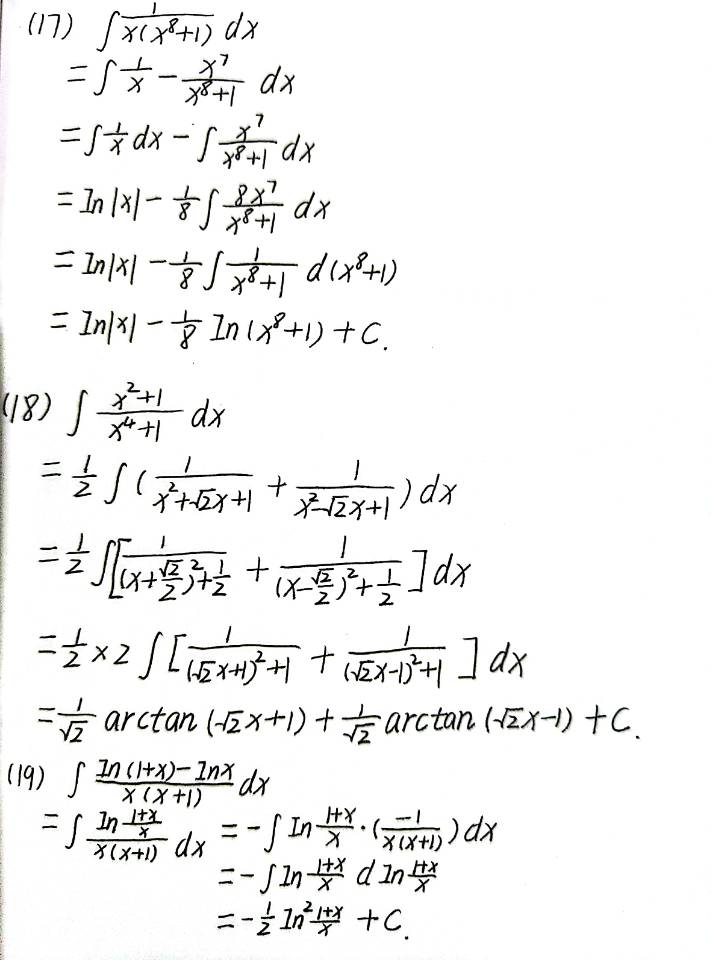 (17) ∫ 1/(x(x⁸+1)) dx
= ∫ 1/x − x⁷/(x⁸+1) dx
= ∫ 1/x dx − ∫ x⁷/(x⁸+1) dx
= ln|x| − 1/8 ∫ 8x⁷/(x⁸+1) dx
= ln|x| − 1/8 ∫ 1/(x⁸+1) d(x⁸+1)
= ln|x| − 1/8 ln(x⁸+1) + C.
(18) ∫ (x²+1)/(x⁴+1) dx
= 1/2 ∫ ( 1/(x²+√2x+1) + 1/(x²−√2x+1) ) dx
= 1/2 ∫ [ 1/((x+√2/2)²+1/2) + 1/((x−√2/2)²+1/2) ] dx
= 1/2 × 2 ∫ [ 1/((√2x+1)²+1) + 1/((√2x−1)²+1) ] dx
= 1/√2 arctan(√2x+1) + 1/√2 arctan(√2x−1) + C.
(19) ∫ (ln(1+x)−lnx)/(x(x+1)) dx
= ∫ (ln (1+x)/x)/(x(x+1)) dx = −∫ ln (1+x)/x · (−1/(x(x+1))) dx
= −∫ ln (1+x)/x d ln (1+x)/x
= −1/2 ln² (1+x)/x + C.